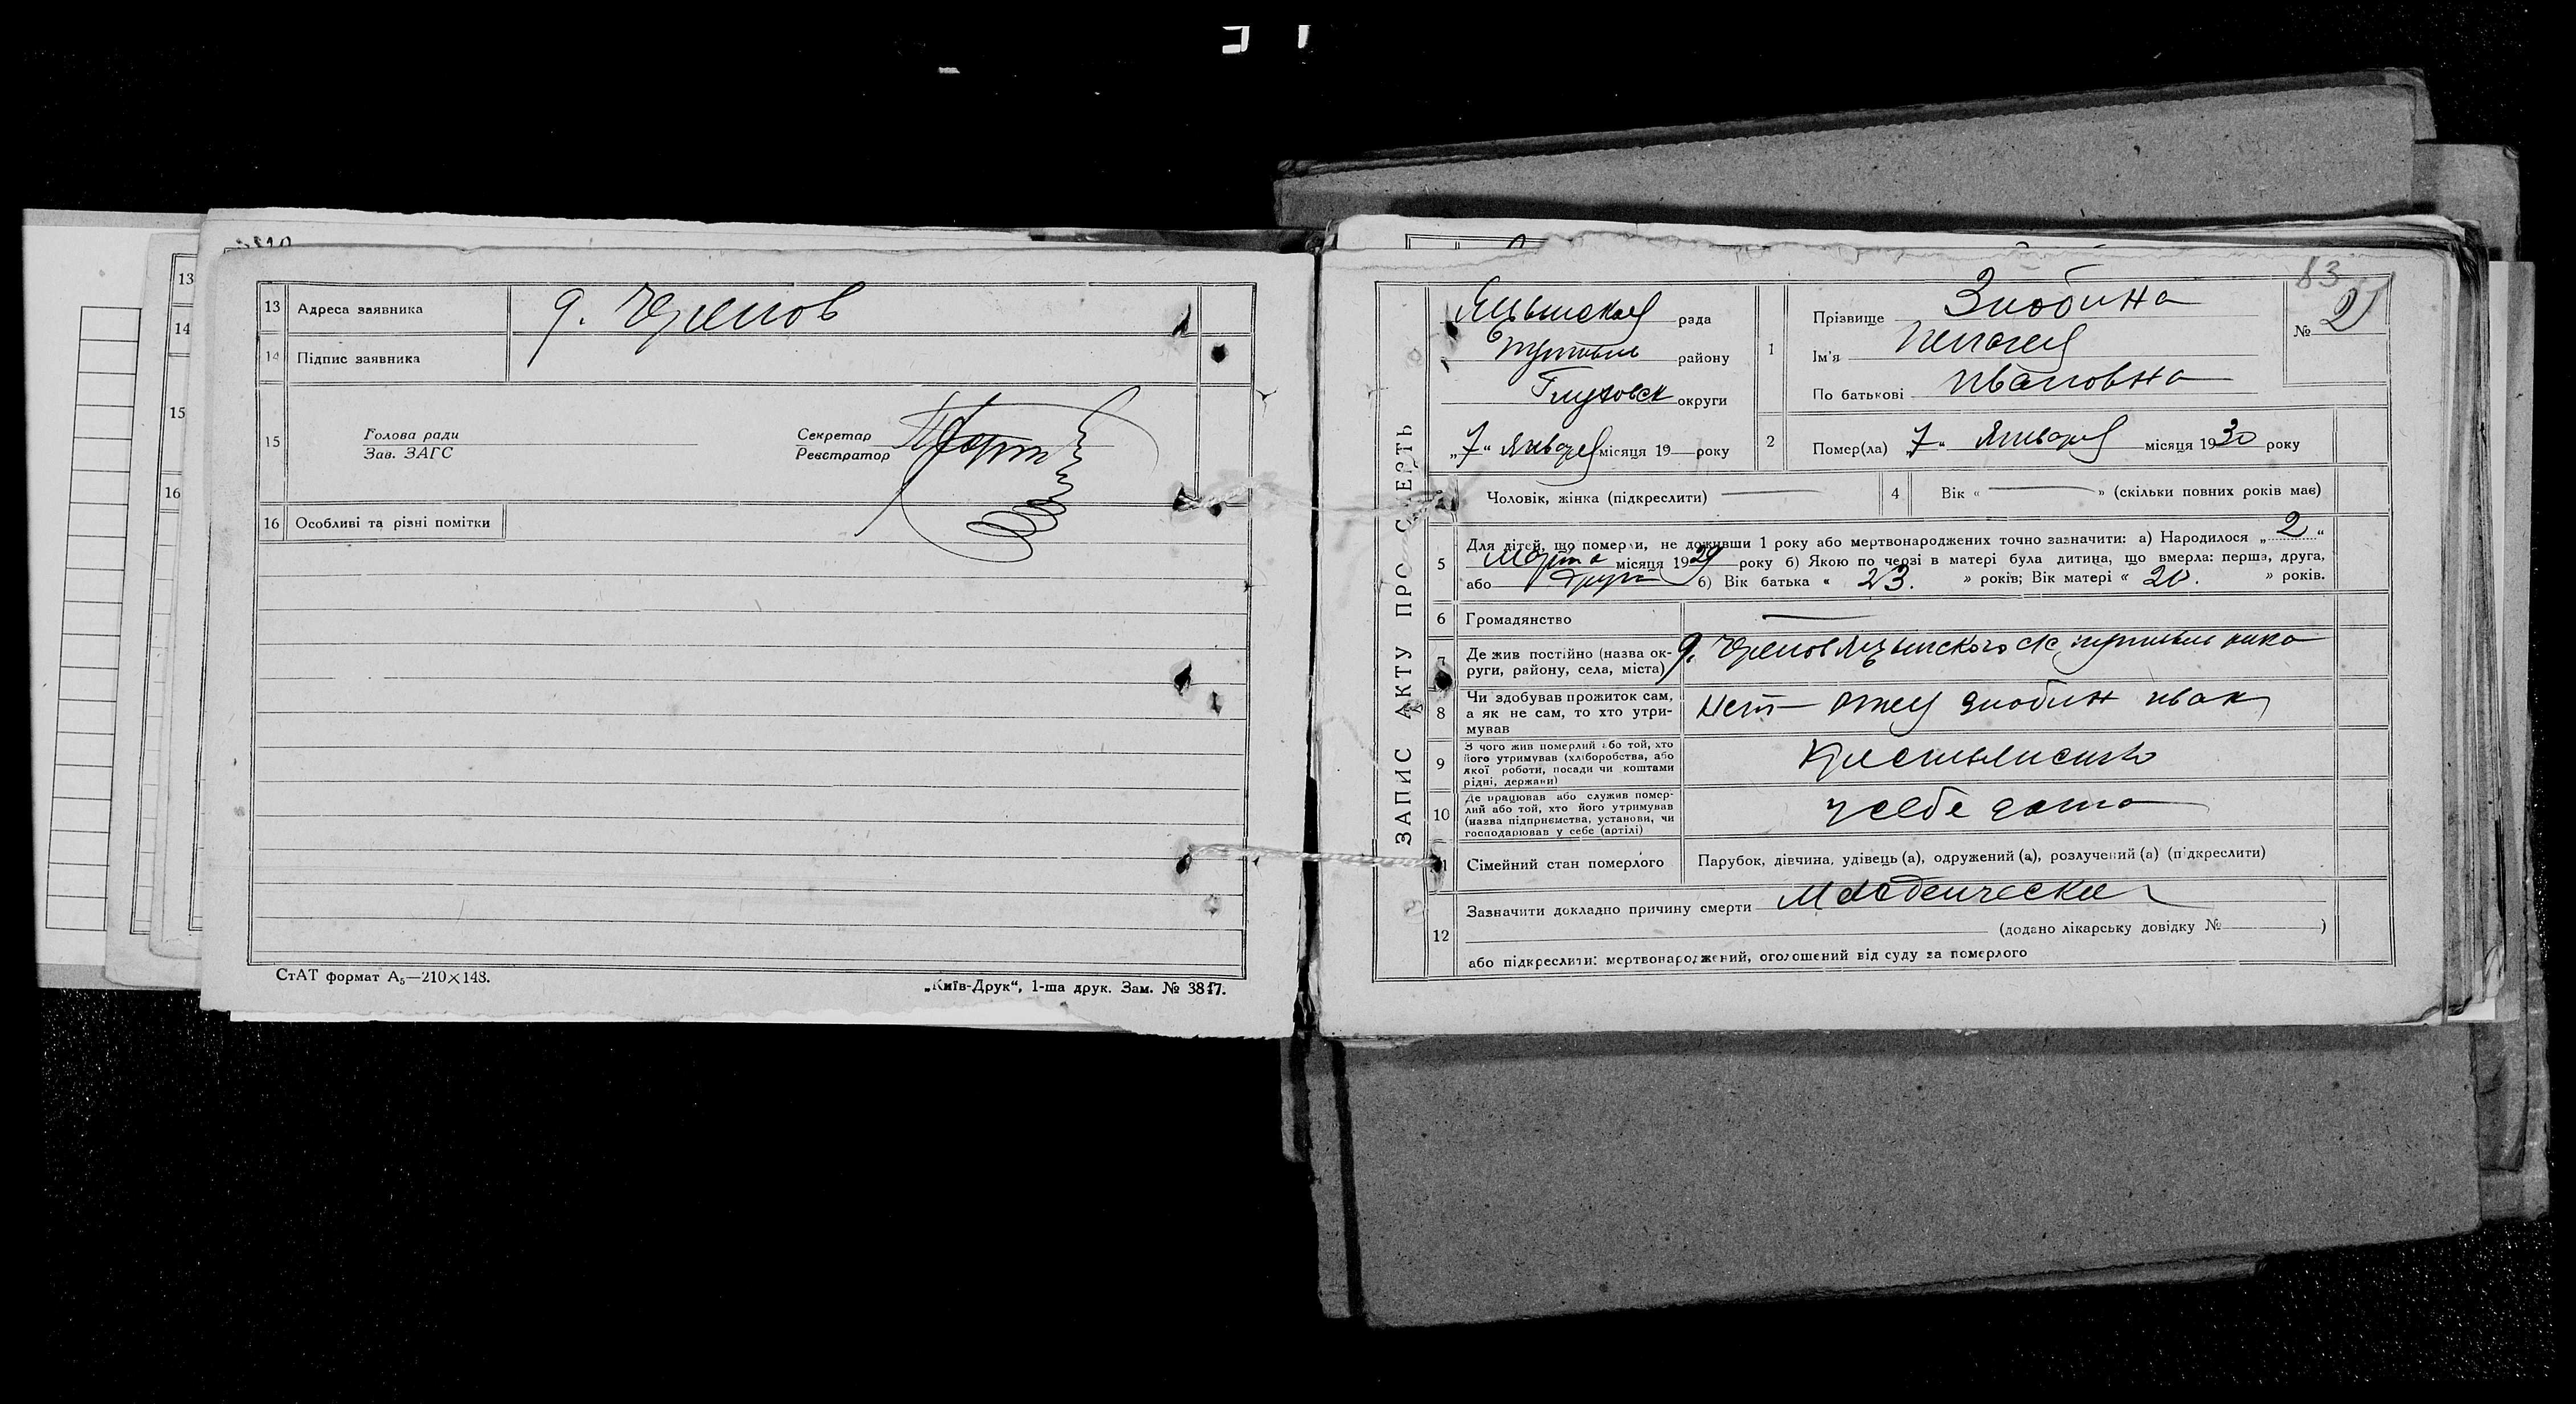 13 Адреса заявника д. Черепов
14 Підпис заявника
15 Голова ради
Зав. ЗАГС
Секретар
Реєстратор
16 Особливі та різні помітки
СтАТ формат А₅—210×148.
„Київ-Друк“, 1-ша друк. Зам. № 3817.
13
14
15
16
83
ЗАПИС АКТУ ПРО СМЕРТЬ
Яцынская рада
Путивль району
Глуховск округи
„7“ Января місяця 19 року
1 Прізвище Знобина
Ім'я Пелагея
По батькові Ивановна
№ 2
2 Помер(ла) „7“ Января місяця 1930 року
Чоловік, жінка (підкреслити)
4 Вік « » (скільки повних років має)
5 Для дітей, що померли, не доживши 1 року або мертвонароджених точно зазначити: а) Народилося „2“
Марта місяця 1929 року б) Якою по черзі в матері була дитина, що вмерла: перша, друга,
або б) Вік батька « 23. » років; Вік матері « 20. » років.
6 Громадянство
7 Де жив постійно (назва ок-
руги, району, села, міста) д. Черепов Яцынского с/с путивль
8 Чи здобував прожиток сам,
а як не сам, то хто утри-
мував Нет отец Знобин Иван
9 З чого жив померлий або той, хто
його утримував (хліборобства, або
якої роботи, посади чи коштами
рідні, держави)
10 Де працював або служив помер-
лий або той, хто його утримував
(назва підприємства, установи, чи
господарював у себе (артілі) у себе дома
11 Сімейний стан померлого Парубок, дівчина, удівець (а), одружений (а), розлучений (а) (підкреслити)
12 Зазначити докладно причину смерти Младенческая
(додано лікарську довідку № )
або підкреслити: мертвонароджений, оголошений від суду за померлого